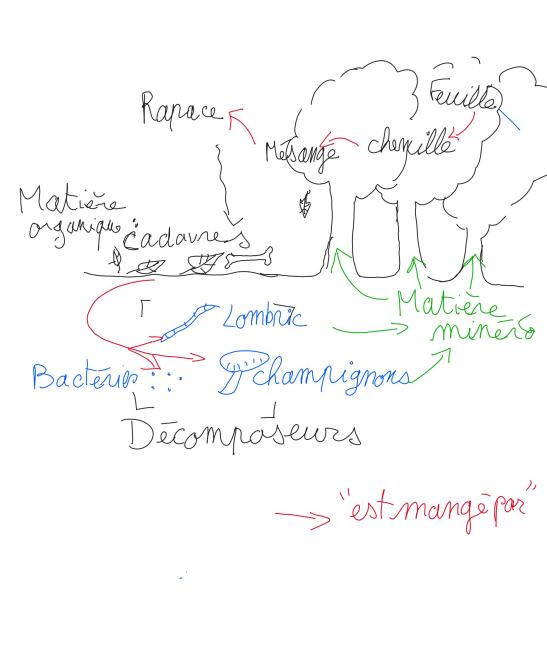 Feuille
Rapace
Mésange
chenille
Matière
organique :
cadavres
Matière
minéra
Lombric
Bactéries
champignons
Décomposeurs
"est mangé par"